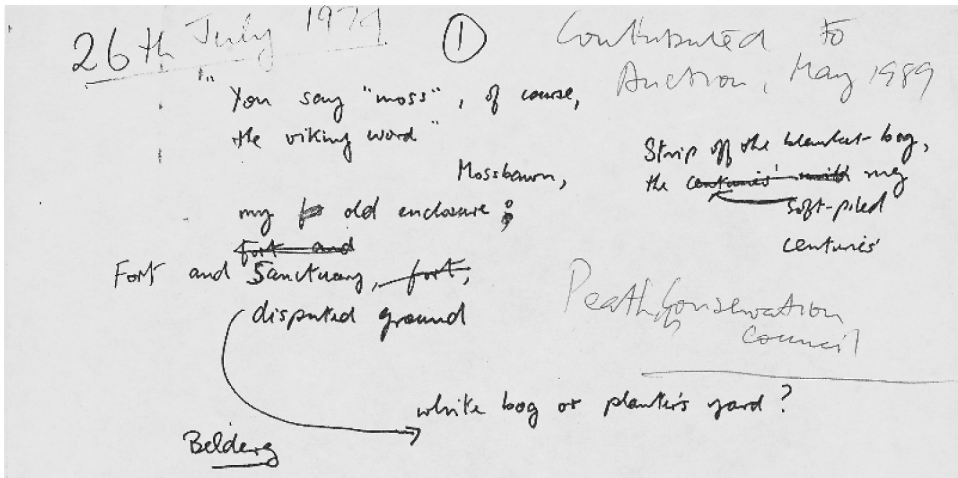 26th July 1974
①
Contributed to
Auction, May 1989
"You say "moss", of course,
the viking word"
Mossbawn,
my old enclosure;
fort and
Fort and Sanctuary, fort,
disputed ground
white bog or planter's yard?
Belderg
Strip off the blanket-bog,
the centuries' my
soft-piled
centuries'
Peatland Conservation
Council